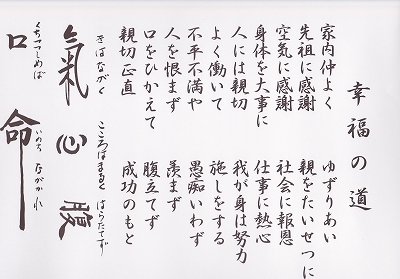 幸福の道
家内仲よく ゆずりあい
先祖に感謝 親をたいせつに
空気に感謝 社会に報恩
身体を大事に 仕事に熱心
人には親切 我が身は努力
よく働いて 施しをする
不平不満や 愚痴いわず
人を恨まず 羨まず
口をひかえて 腹立てず
親切正直 成功のもと
きはながく こころはまるく はらたてず
氣 心 腹
くちつつしめば いのちながかれ
口 命